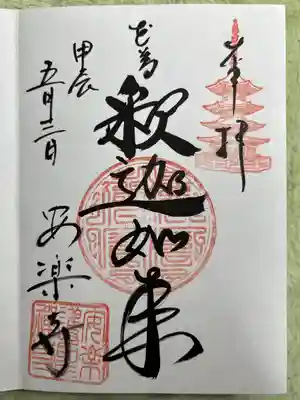 奉拝
釈迦如来
甲辰
五月三日
安楽寺